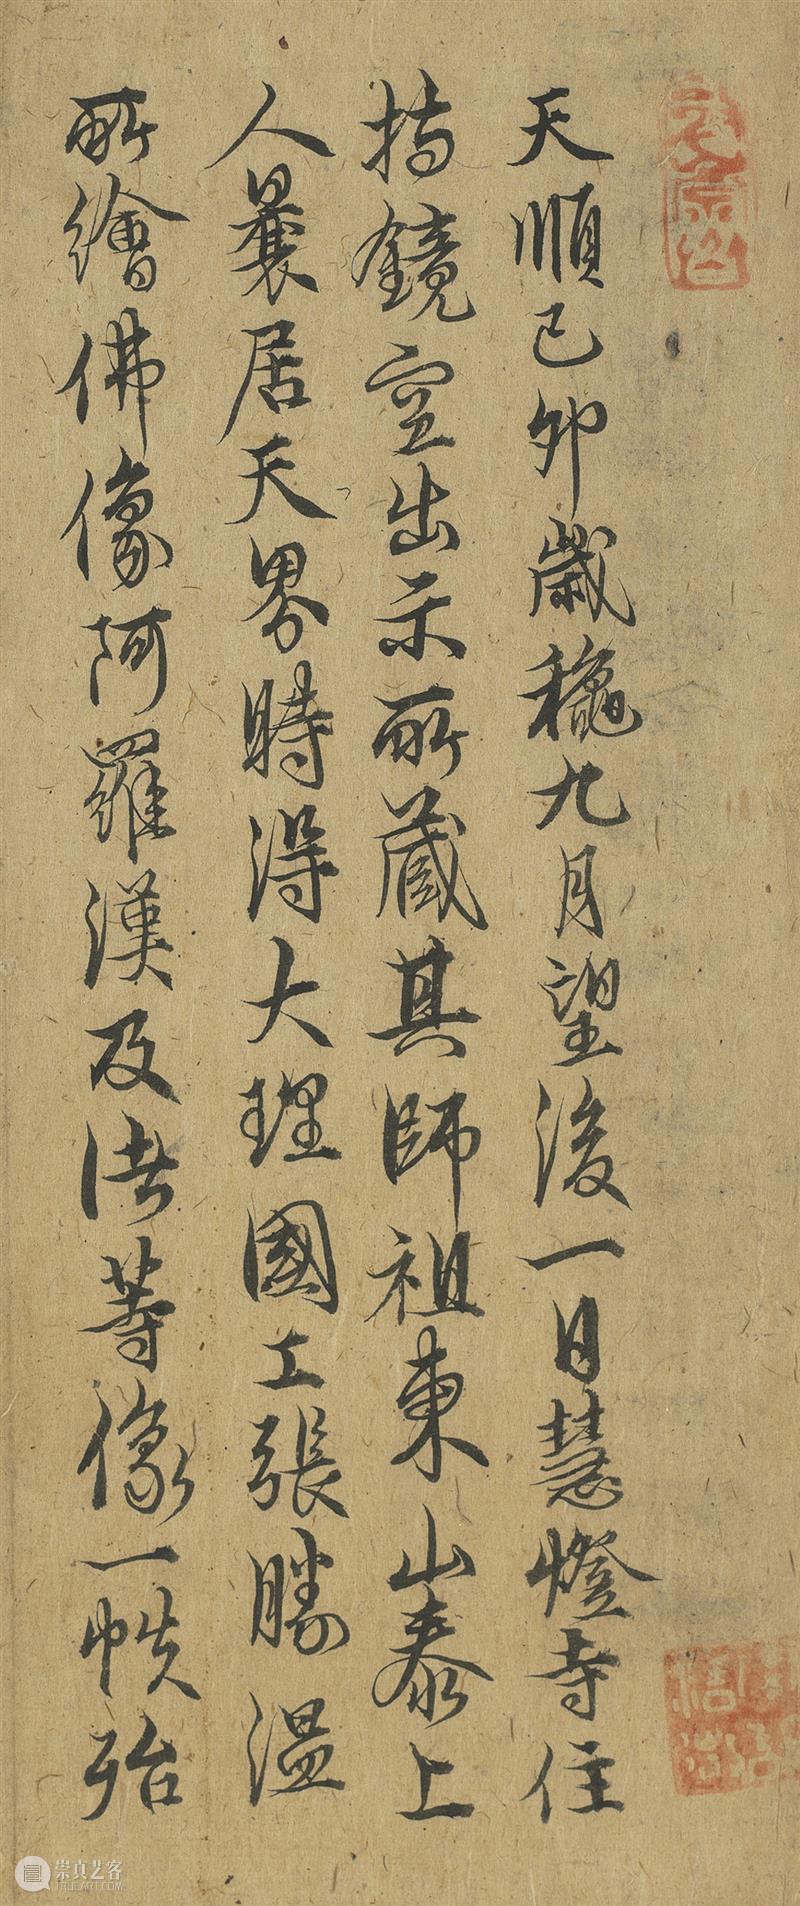 天順己卯歲龝九月望後一日慧燈寺住
持鏡空出示所藏其師祖東山泰上
人曩居天界時得大理國工張勝溫
所繪佛像阿羅漢及諸等像一帙殆
崇真艺客